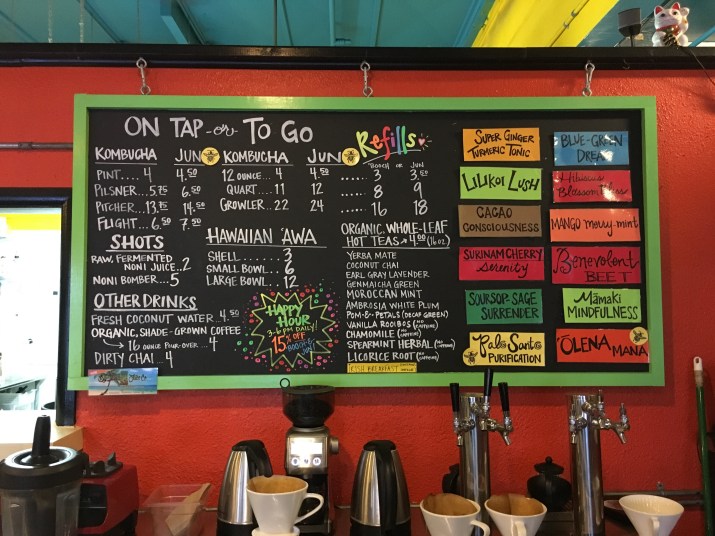 ON TAP -or- TO GO
KOMBUCHA JUN
PINT.... 4 4.50
PILSNER... 5.75 6.50
PITCHER... 13.75 14.50
FLIGHT... 6.50 7.50
SHOTS
RAW, FERMENTED
NONI JUICE.. 2
NONI BOMBER... 5
OTHER DRINKS
FRESH COCONUT WATER.. 4.50
ORGANIC, SHADE-GROWN COFFEE
16 OUNCE POUR-OVER ... 4
DIRTY CHAI... 4
KOMBUCHA JUN
12 OUNCE.... 4 4.50
QUART.... 11 12
GROWLER.. 22 24
HAWAIIAN 'AWA
SHELL........ 3
SMALL BOWL.. 6
LARGE BOWL.. 12
HAPPY
HOUR
3-6 PM DAILY!
15% OFF
BOOCH &
JUN
Refills
BOOCH OR JUN
...... 3 3.50
...... 8 9
...... 16 18
ORGANIC, WHOLE-LEAF
HOT TEAS 4.00 (16 OZ)
YERBA MATE
COCONUT CHAI
EARL GRAY LAVENDER
GENMAICHA GREEN
MOROCCAN MINT
AMBROSIA WHITE PLUM
POM-B-PETALS (DECAF GREEN)
VANILLA ROOIBOS (NO CAFFEINE)
CHAMOMILE (NO CAFFEINE)
SPEARMINT HERBAL (NO CAFFEINE)
LICORICE ROOT (NO CAFFEINE)
IRISH BREAKFAST
SUPER GINGER
TURMERIC TONIC
LILIKOI LUSH
CACAO
CONSCIOUSNESS
SURINAM CHERRY
Serenity
SOURSOP-SAGE
SURRENDER
Palo Santo
PURIFICATION
BLUE-GREEN
DREAM
Hibiscus
Blossom Bliss
MANGO merry-mint
Benevolent
BEET
Māmaki
MINDFULNESS
'ŌLENA MANA